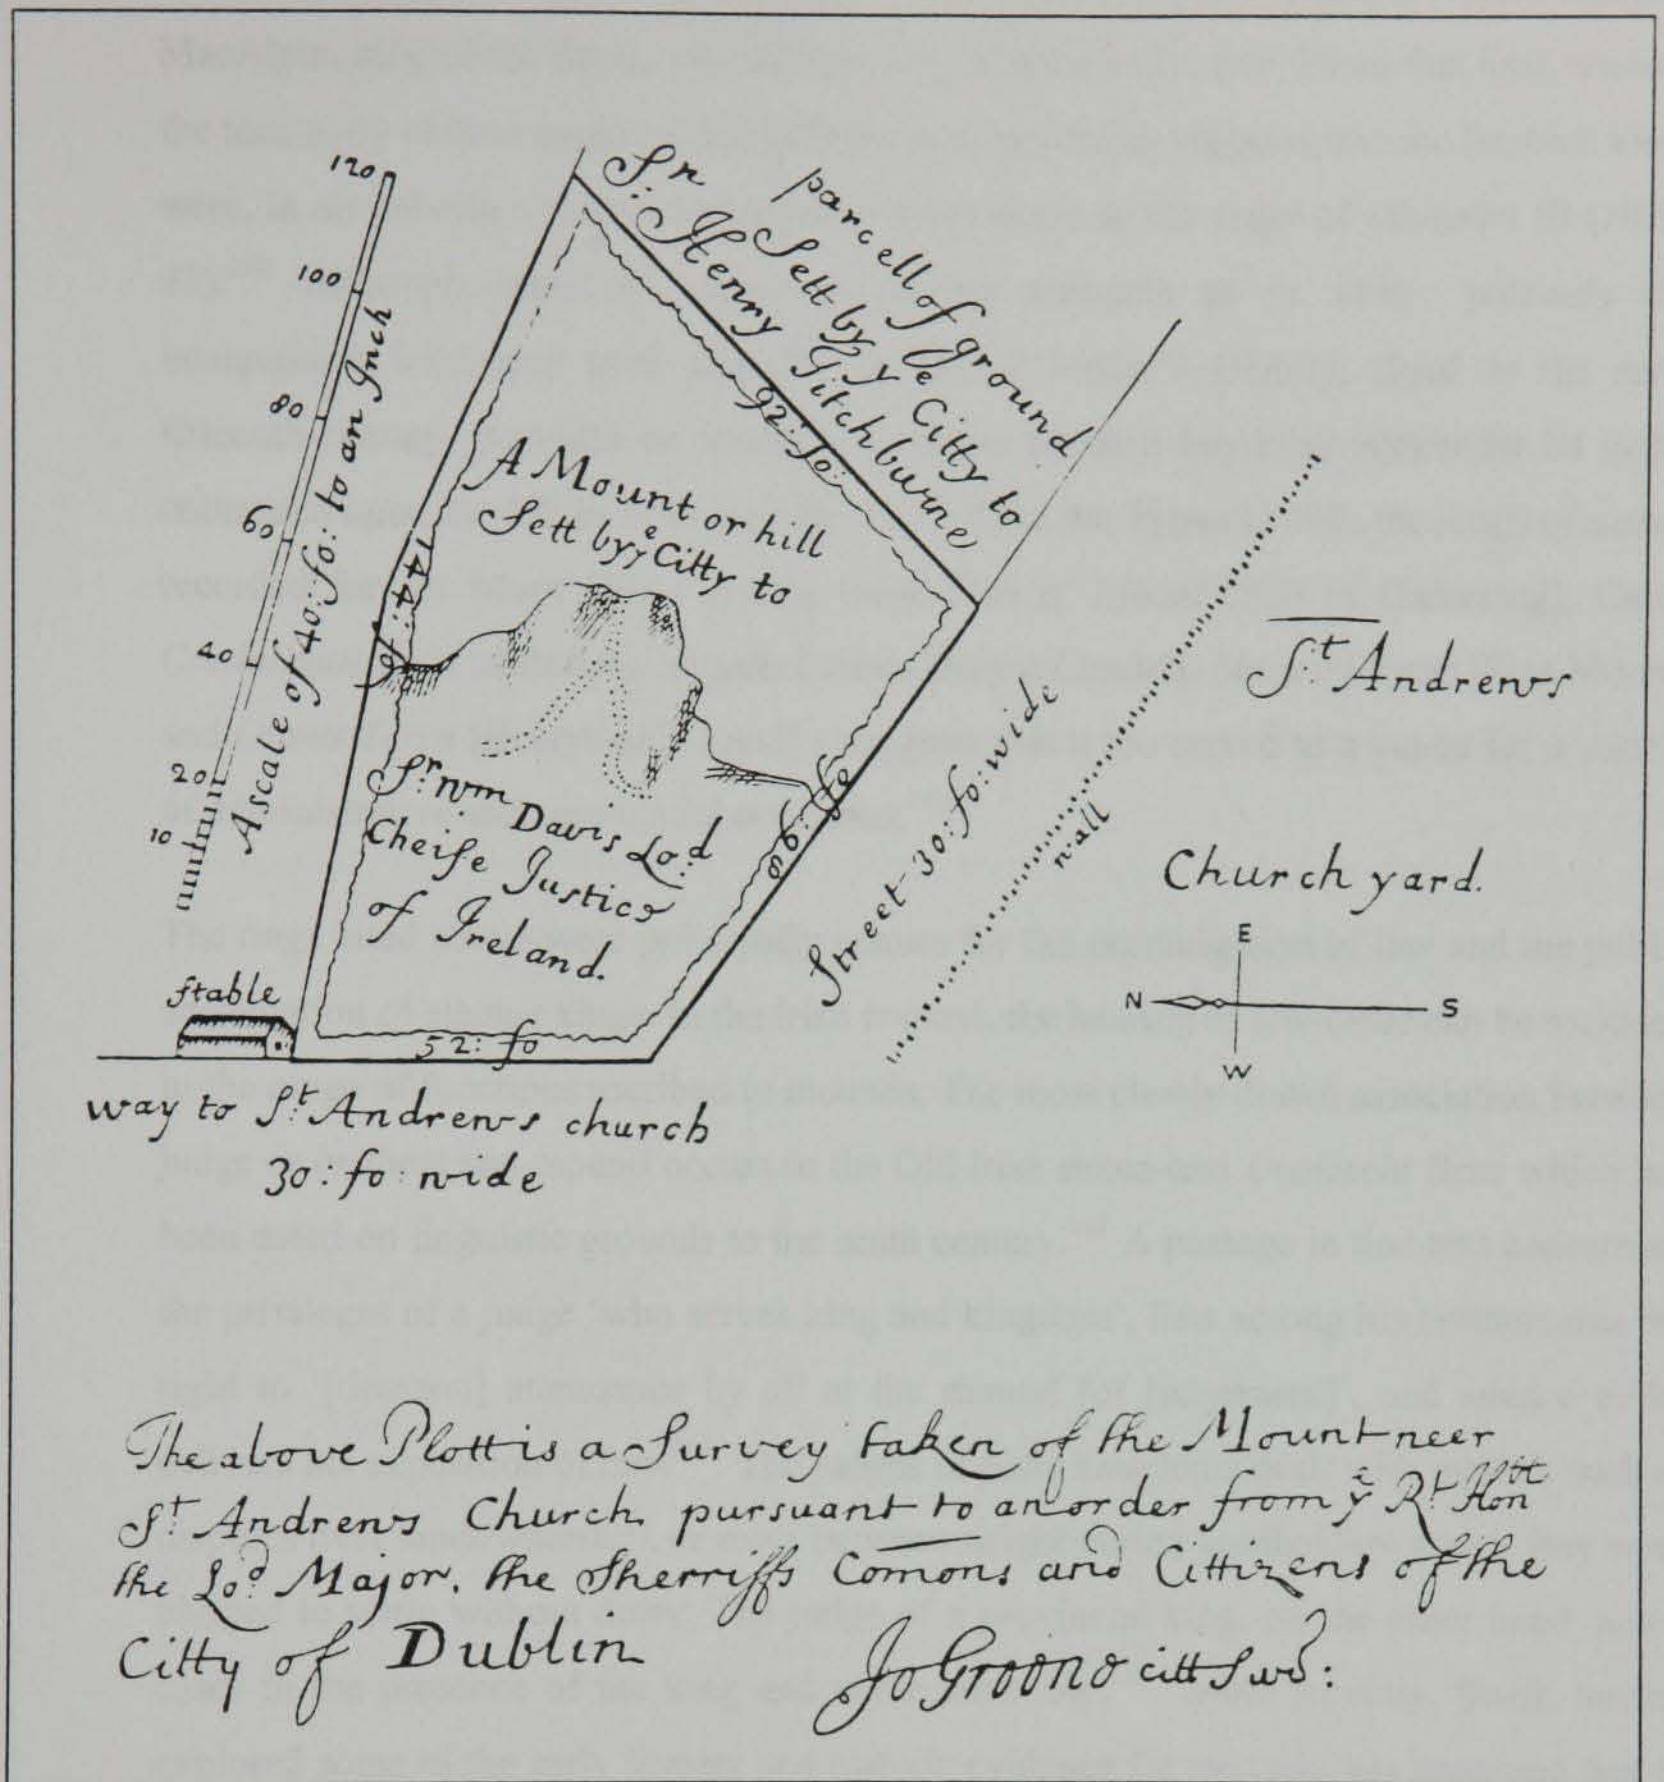 120
100
80
60
40
20
10
A scale of 40: fo: to an Inch
parcell of ground
Sett by yᵉ Citty to
Sʳ: Henry Titchburne
92: fo:
A Mount or hill
Sett by yᵉ Citty to
144: fo
Sʳ Wm Davis Loᵈ
Cheife Justice
of Ireland.
86: fo
52: fo
Street 30: fo: wide
wall
Sᵗ: Andrews
Church yard.
E
N
S
W
stable
way to Sᵗ: Andrews church
30: fo: wide
The above Plott is a Survey taken of the Mount neer
Sᵗ: Andrews Church pursuant to an order from yᵉ Rᵗ Honᵇˡᵉ
the Loᵈ Major, the Sherriffs Comons and Cittizens of the
Citty of Dublin
Jo Greene citt Sur: